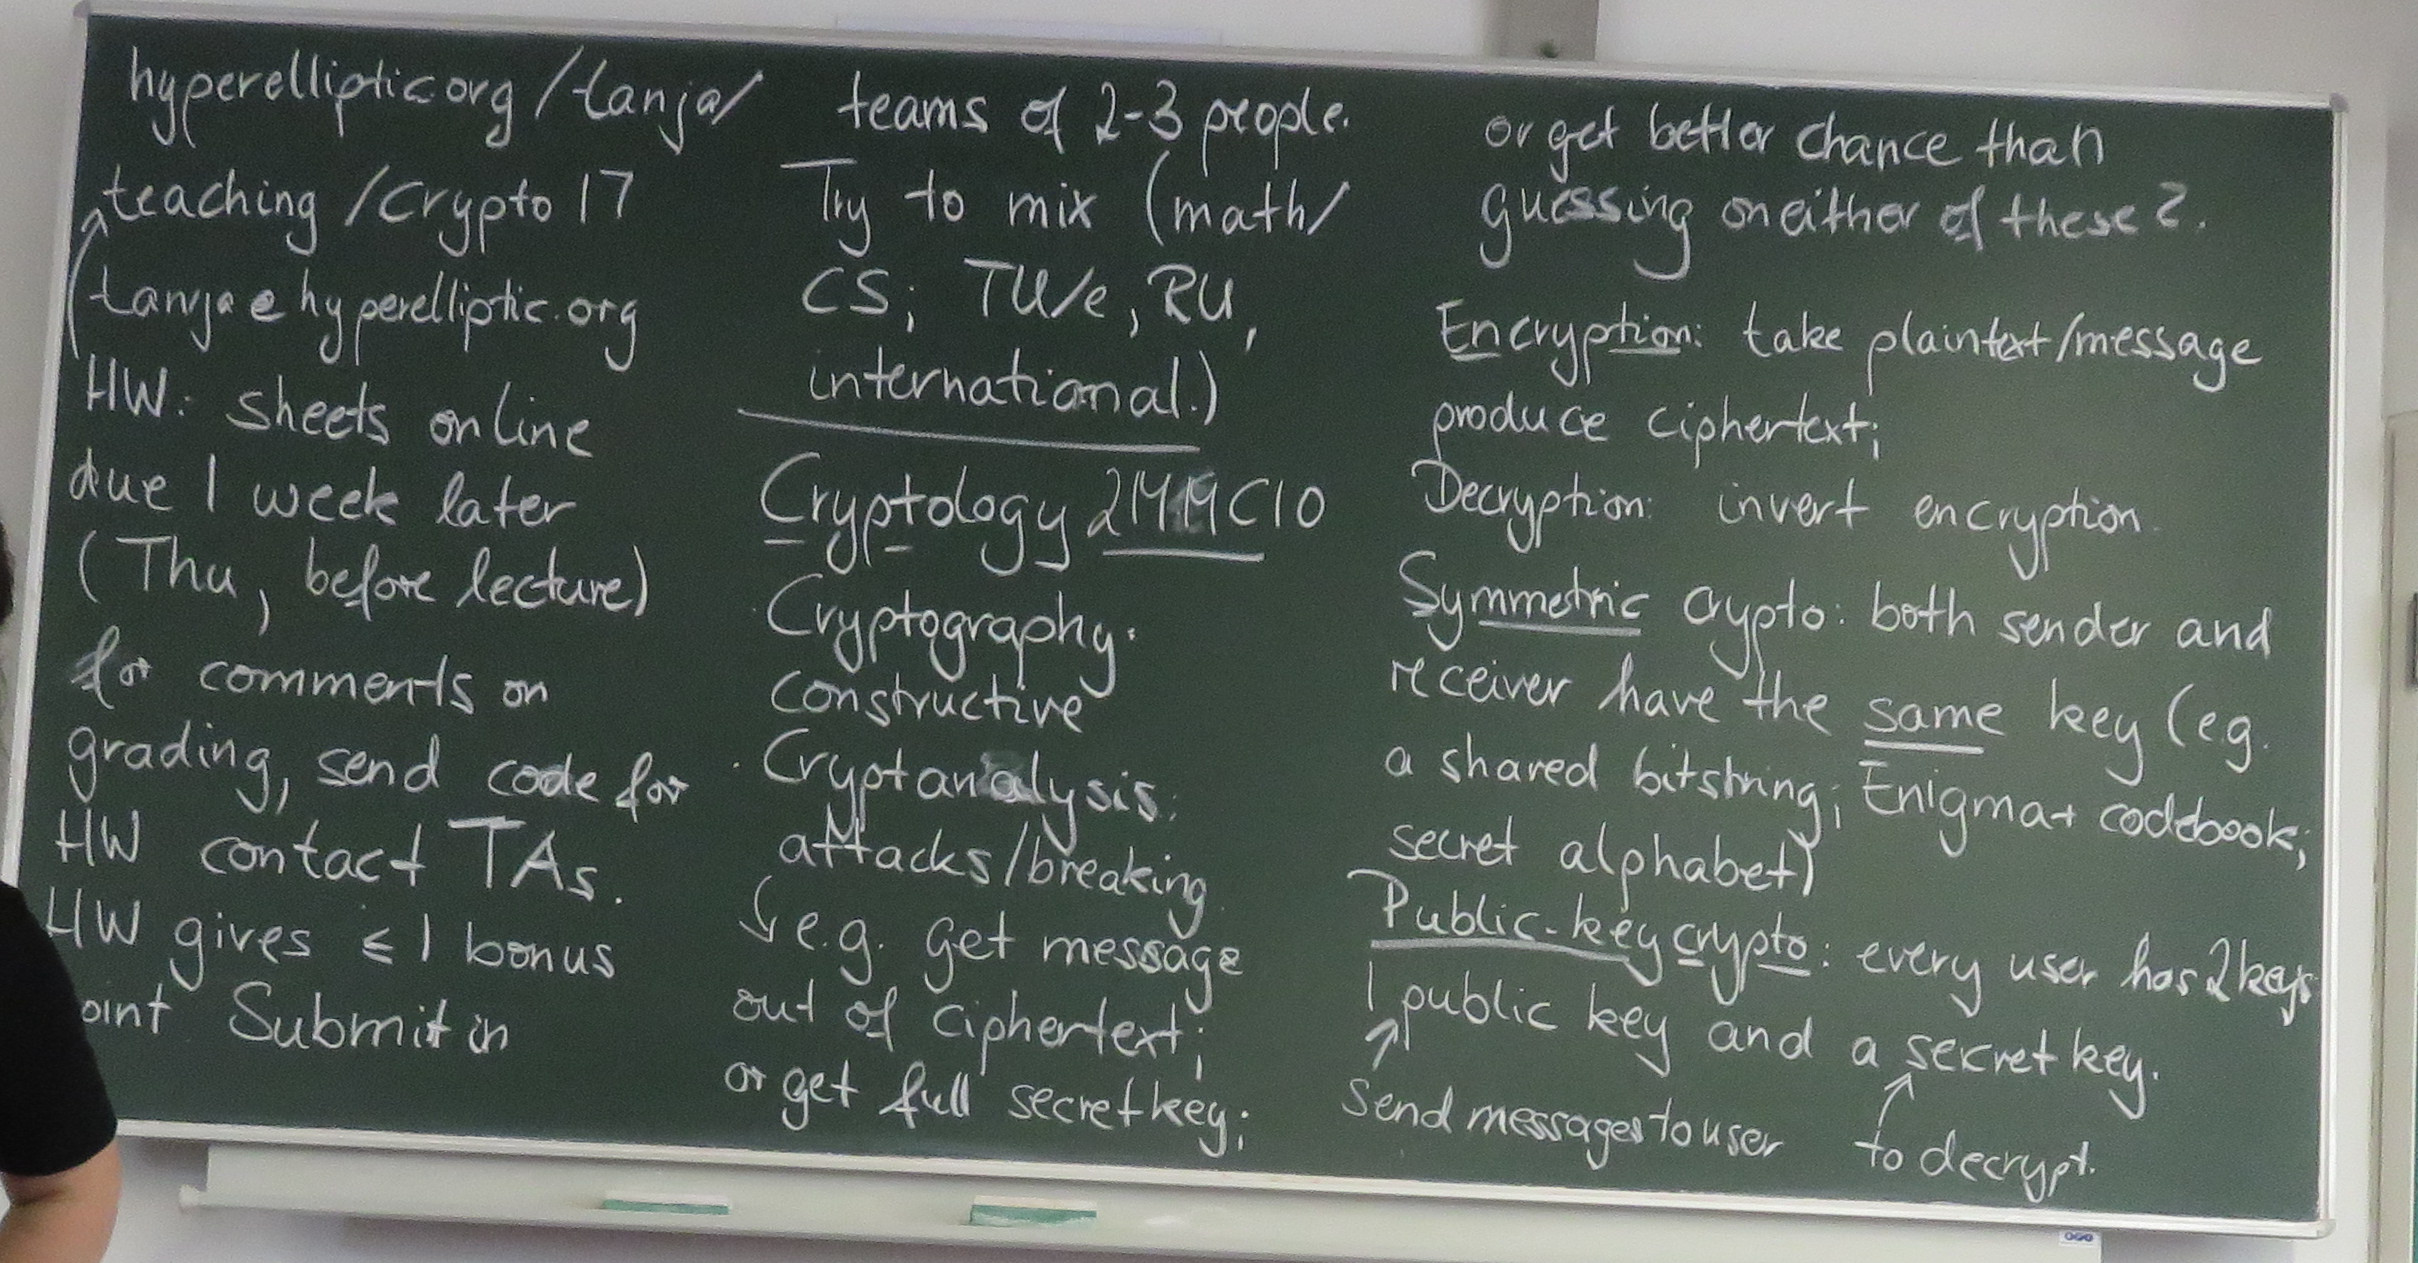 hyperelliptic.org/tanja/
teaching/crypto17
tanja@hyperelliptic.org
HW: sheets online
due 1 week later
(Thu, before lecture)
for comments on
grading, send code for
HW contact TAs.
HW gives ≤ 1 bonus
oint Submit in
teams of 2-3 people.
Try to mix (math/
CS; TU/e, RU,
international.)
Cryptology 2MMC10
Cryptography:
constructive
Cryptanalysis:
attacks/breaking
e.g. get message
out of ciphertext;
or get full secret key;
or get better chance than
guessing on either of these 2.
Encryption: take plaintext/message
produce ciphertext;
Decryption: invert encryption.
Symmetric crypto: both sender and
receiver have the same key (e.g.
a shared bitstring; Enigma + codebook;
secret alphabet)
Public-key crypto: every user has 2 keys
1 public key and a secret key.
send messages to user to decrypt.